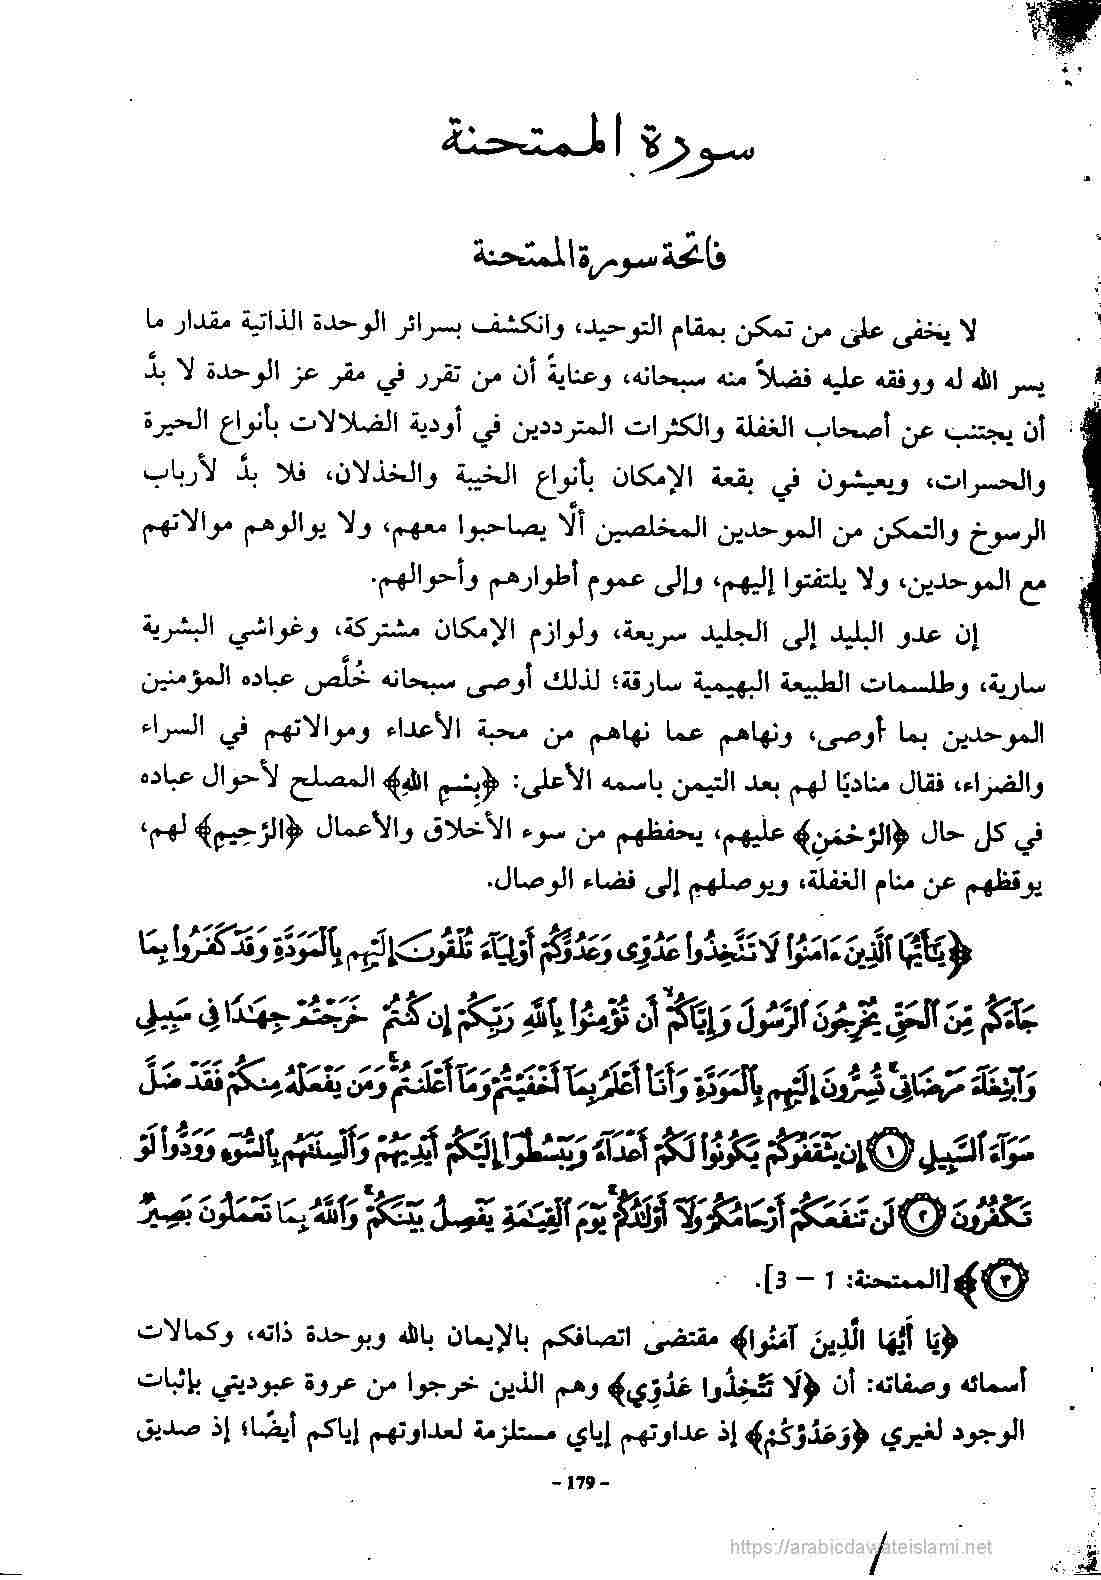 سورة الممتحنة
فاتحة سورة الممتحنة
لا يخفى على من تمكن بمقام التوحيد، وانكشف بسرائر الوحدة الذاتية مقدار ما
يسر الله له ووفقه عليه فضلاً منه سبحانه، وعنايةً أن من تقرر في مقر عز الوحدة لا بدَّ
أن يجتنب عن أصحاب الغفلة والكثرات المترددين في أودية الضلالات بأنواع الحيرة
والحسرات، ويعيشون في بقعة الإمكان بأنواع الخيبة والخذلان، فلا بدَّ لأرباب
الرسوخ والتمكن من الموحدين المخلصين ألَّا يصاحبوا معهم، ولا يوالوهم موالاتهم
مع الموحدين، ولا يلتفتوا إليهم، وإلى عموم أطوارهم وأحوالهم.
إن عدو البليد إلى الجليد سريعة، ولوازم الإمكان مشتركة، وغواشي البشرية
سارية، وطلسمات الطبيعة البهيمية سارقة؛ لذلك أوصى سبحانه خُلَّص عباده المؤمنين
الموحدين بما أوصى، ونهاهم عما نهاهم من محبة الأعداء وموالاتهم في السراء
والضراء، فقال مناديًا لهم بعد التيمن باسمه الأعلى: ﴿بِسْمِ اللهِ﴾ المصلح لأحوال عباده
في كل حال ﴿الرَّحْمَنِ﴾ عليهم، يحفظهم من سوء الأخلاق والأعمال ﴿الرَّحِيمِ﴾ لهم،
يوقظهم عن منام الغفلة، ويوصلهم إلى فضاء الوصال.
﴿يَٰٓأَيُّهَا ٱلَّذِينَ ءَامَنُوا۟ لَا تَتَّخِذُوا۟ عَدُوِّى وَعَدُوَّكُمْ أَوْلِيَآءَ تُلْقُونَ إِلَيْهِم بِٱلْمَوَدَّةِ وَقَدْ كَفَرُوا۟ بِمَا
جَآءَكُم مِّنَ ٱلْحَقِّ يُخْرِجُونَ ٱلرَّسُولَ وَإِيَّاكُمْ ۙ أَن تُؤْمِنُوا۟ بِٱللَّهِ رَبِّكُمْ إِن كُنتُمْ خَرَجْتُمْ جِهَٰدًا فِى سَبِيلِى
وَٱبْتِغَآءَ مَرْضَاتِى ۚ تُسِرُّونَ إِلَيْهِم بِٱلْمَوَدَّةِ وَأَنَا۠ أَعْلَمُ بِمَآ أَخْفَيْتُمْ وَمَآ أَعْلَنتُمْ ۚ وَمَن يَفْعَلْهُ مِنكُمْ فَقَدْ ضَلَّ
سَوَآءَ ٱلسَّبِيلِ ١ إِن يَثْقَفُوكُمْ يَكُونُوا۟ لَكُمْ أَعْدَآءً وَيَبْسُطُوٓا۟ إِلَيْكُمْ أَيْدِيَهُمْ وَأَلْسِنَتَهُم بِٱلسُّوٓءِ وَوَدُّوا۟ لَوْ
تَكْفُرُونَ ٢ لَن تَنفَعَكُمْ أَرْحَامُكُمْ وَلَآ أَوْلَٰدُكُمْ ۚ يَوْمَ ٱلْقِيَٰمَةِ يَفْصِلُ بَيْنَكُمْ ۚ وَٱللَّهُ بِمَا تَعْمَلُونَ بَصِيرٌ
٣﴾ [الممتحنة: 1 – 3].
﴿يَا أَيُّهَا الَّذِينَ آمَنُوا﴾ مقتضى اتصافكم بالإيمان بالله وبوحدة ذاته، وكمالات
أسمائه وصفاته: أن ﴿لَا تَتَّخِذُوا عَدُوِّي﴾ وهم الذين خرجوا من عروة عبوديتي بإثبات
الوجود لغيري ﴿وَعَدُوَّكُمْ﴾ إذ عداوتهم إياي مستلزمة لعداوتهم إياكم أيضًا؛ إذ صديق
- 179 -
https://arabicdawateislami.net